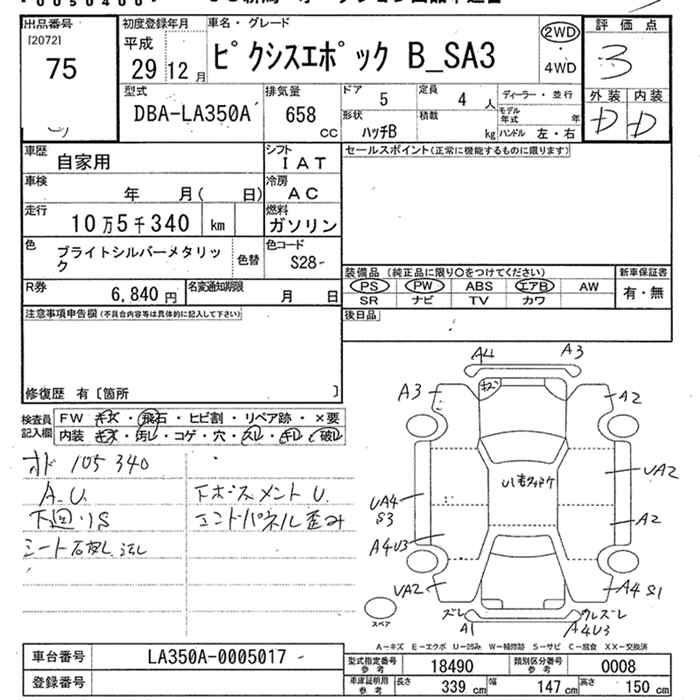 出品番号
[2072]
75
初度登録年月
平成
29 12 月
車名・グレード
ピクシスエポック B_SA3
2WD
4WD
評価点
3
外装 内装
D D
型式
DBA-LA350A
排気量
658
cc
ドア 5
定員 4 人
形状 ハッチB
積載 kg
ディーラー・並行
モデル年式 年
ハンドル 左・右
車歴 自家用
シフト IAT
車検 年 月( 日)
冷房 AC
走行 10万5千340 km
燃料 ガソリン
色 ブライトシルバーメタリック
色替
色コード S28-
R券 6,840 円
名変通知期限 月 日
セールスポイント(正常に機能するものに限ります)
装備品(純正品に限り○をつけてください)
PS PW ABS エアB AW
SR ナビ TV カワ
新車保証書
有・無
後日品
注意事項申告欄(不具合内容等は具体的に記入して下さい)
修復歴 有〔箇所 〕
検査員記入欄
FW キズ・飛石・ヒビ割・リペア跡・×要
内装 キズ・汚レ・コゲ・穴・スレ・キレ・破レ
オド 105340
A.U.
下回リS
下ボスメントU.
エンドパネル歪み
A4 A3
A3 A2
UA2
UA4
S3
A2
A4U3
UA2
A4 S1
ズレ
A1
A4U3
スペア
A-キズ E-エクボ U-凹み W-補修跡 S-サビ C-腐食 XX-交換済
車台番号 LA350A-0005017-
登録番号
型式指定番号 参考 18490
類別区分番号 参考 0008
車庫証明用 参考 長さ 339 cm 幅 147 cm 高さ 150 cm